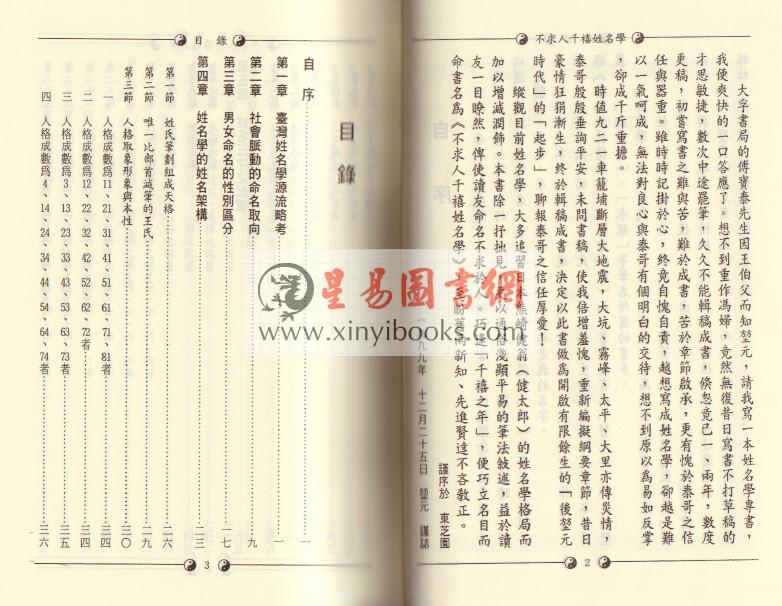 不求人千禧姓名學
大孚書局的傅寶泰先生因王伯父而知堃元，請我寫一本姓名學專書，
我便爽快的一口答應了。想不到重作馮婦，竟然無復昔日寫書不打草稿的
才思敏捷，數次中途罷筆，久久不能輯稿成書，倏忽竟已一、兩年，數度
更稿，初嘗寫書之難與苦，難於成書，苦於章節啟承，更有愧於泰哥之信
任與器重。雖時時記掛於心，終竟自愧自責，越想寫成姓名學，卻越是難
以一氣呵成，無法對良心與泰哥有個明白的交待，想不到原以為易如反掌
，卻成千斤重擔。
時值九二一車籠埔斷層大地震，大坑、霧峰、太平、大里亦傳災情，
泰哥殷殷垂詢平安，未問書稿，使我倍增羞愧，重新編擬綱要章節，昔日
豪情狂狷漸生，終於輯稿成書，決定以此書做為開啟有限餘生的「後堃元
時代」的「起步」，聊報泰哥之信任厚愛！
縱觀目前姓名學，大多追習日本熊崎健翁（健太郎）的姓名學格局而
加以增減潤飾。本書除一抒拙見，更以通俗淺顯平易的筆法敍述，益於讀
友一目瞭然，俾使讀友命名不求於人。巧逢「千禧之年」，便巧立名目而
命書名為《不求人千禧姓名學》，至盼舊雨新知、先進賢達不吝教正。
謹序於 東芝園
一九九九年 十二月二十五日 堃元 謹誌
2
目錄
目錄
自 序 一
第一章 臺灣姓名學源流略考 一
第二章 社會脈動的命名取向 九
第三章 男女命名的性別區分 一七
第四章 姓名學的姓名架構 二三
第一節 姓氏筆劃組成天格 二六
第二節 唯一比部首減筆的王氏 二九
第三節 人格取象形象與本性 三〇
一 人格成數為1、11、21、31、41、51、61、71、81者 三四
二 人格成數為2、12、22、32、42、52、62、72者 三四
三 人格成數為3、13、23、33、43、53、63、73者 三五
四 人格成數為4、14、24、34、44、54、64、74者 三六
3
星易圖書網
www.xinyibooks.com